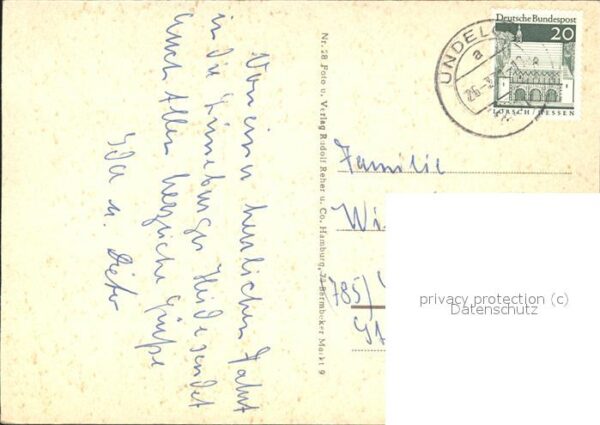 Von einer herrlichen Fahrt
in die Lüneburger Heide sendet
Euch Allen herzliche Grüße
Ida u. Dieter
Nr. 28 Foto u. Verlag Rudolf Reher u. Co. Hamburg, 33 Barmbeker Markt 9
UNDELOH
a
26.-3.
Deutsche Bundespost
20
LORSCH/HESSEN
Familie
Wi
785/
privacy protection (c)
Datenschutz